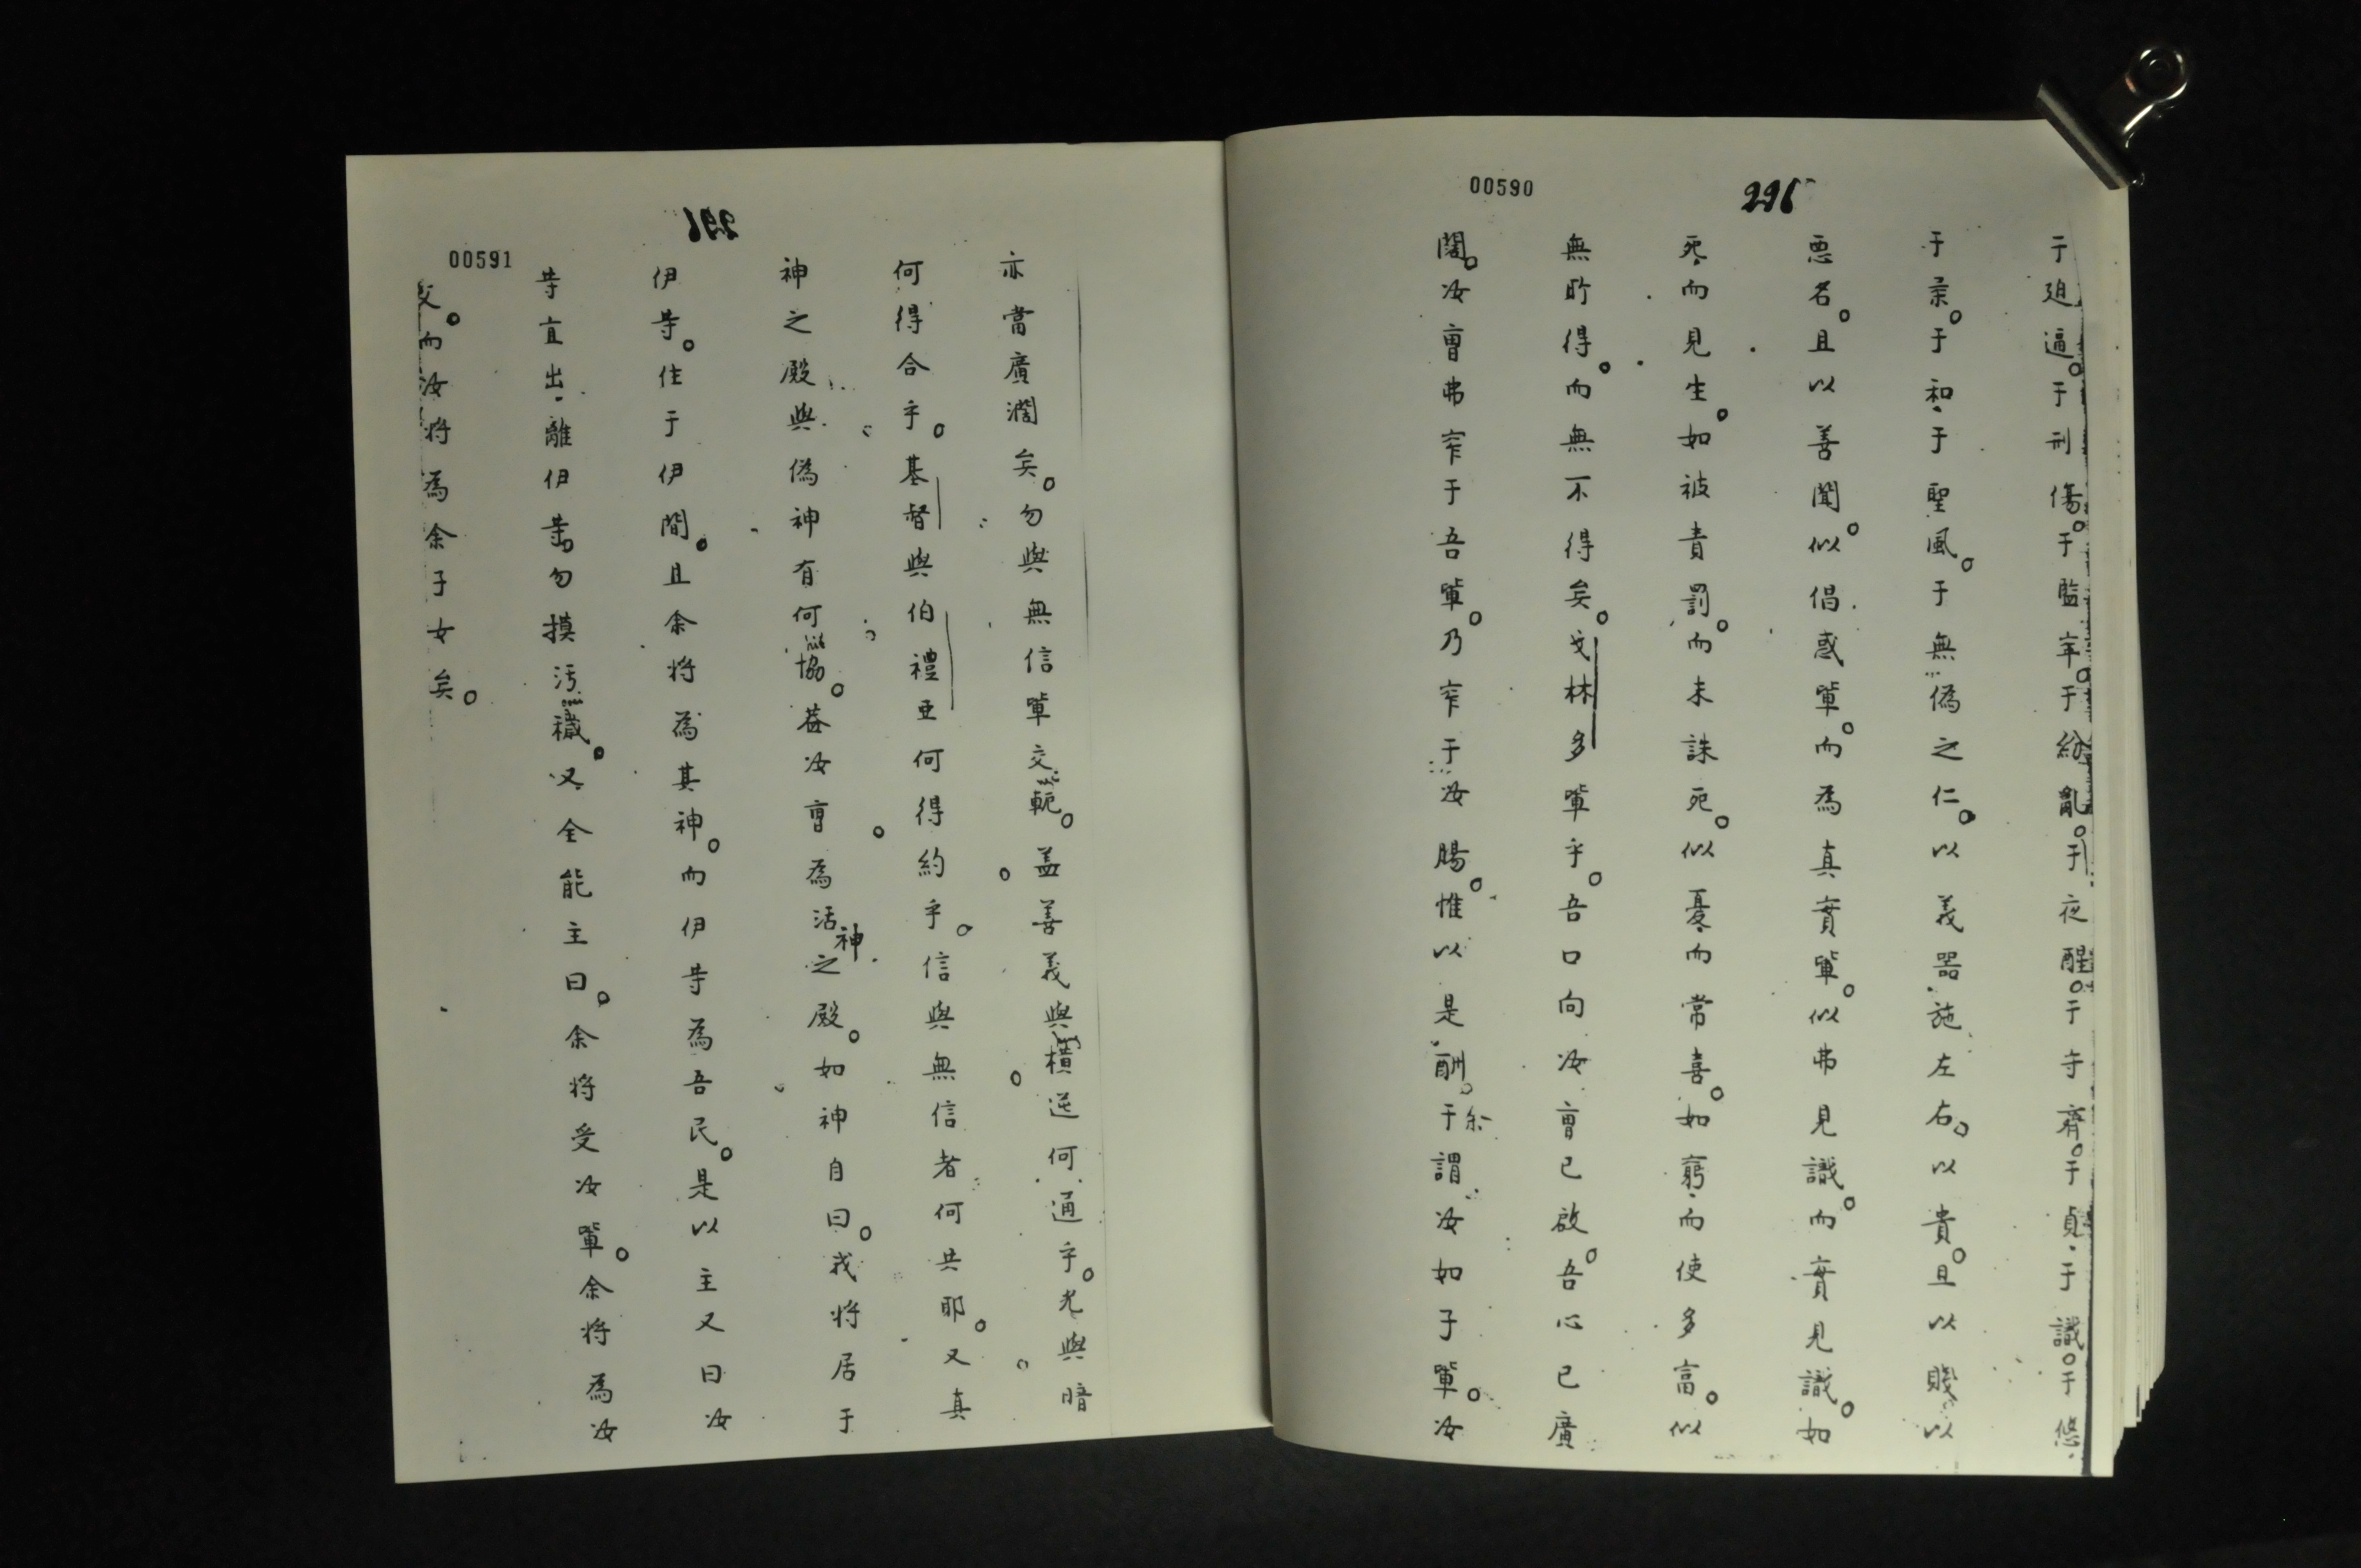 00590
296
于廹逼。于刑傷。于監牢。于紛亂。于夜醒。于守齋。于貞、于識。于悠、
于柔。于和、于聖風。于無偽之仁。以義器施左右。以貴。且以賤、以
惡名。且以善聞。似倡惑軰。而為真實軰。似弗見識。而實見識。如
死、而見生。如被責罰。而未誅死。似憂、而常喜。如窮、而使多富。似
無所得。而無不得矣。戈林多軰乎。吾口向汝曹已啟。吾心已廣
闊。汝曹弗窄于吾軰。乃窄于汝腸。惟以是酬。余于謂汝如子軰。汝
296
00591
亦當廣濶矣。勿與無信軰交軛。盖善義與橫逆何通乎。光與暗
何得合乎。基督與伯禮亜何得約乎。信與無信者何共耶。又真
神之殿與偽神有何協。葢汝曹為活神之殿。如神自曰。我將居于
伊等。住于伊間。且余将為其神。而伊等為吾民。是以主又曰汝
等直出、離伊等。勿摸汚穢。又全能主曰。余将受汝軰。余将為汝
父。而汝将為余子女矣。